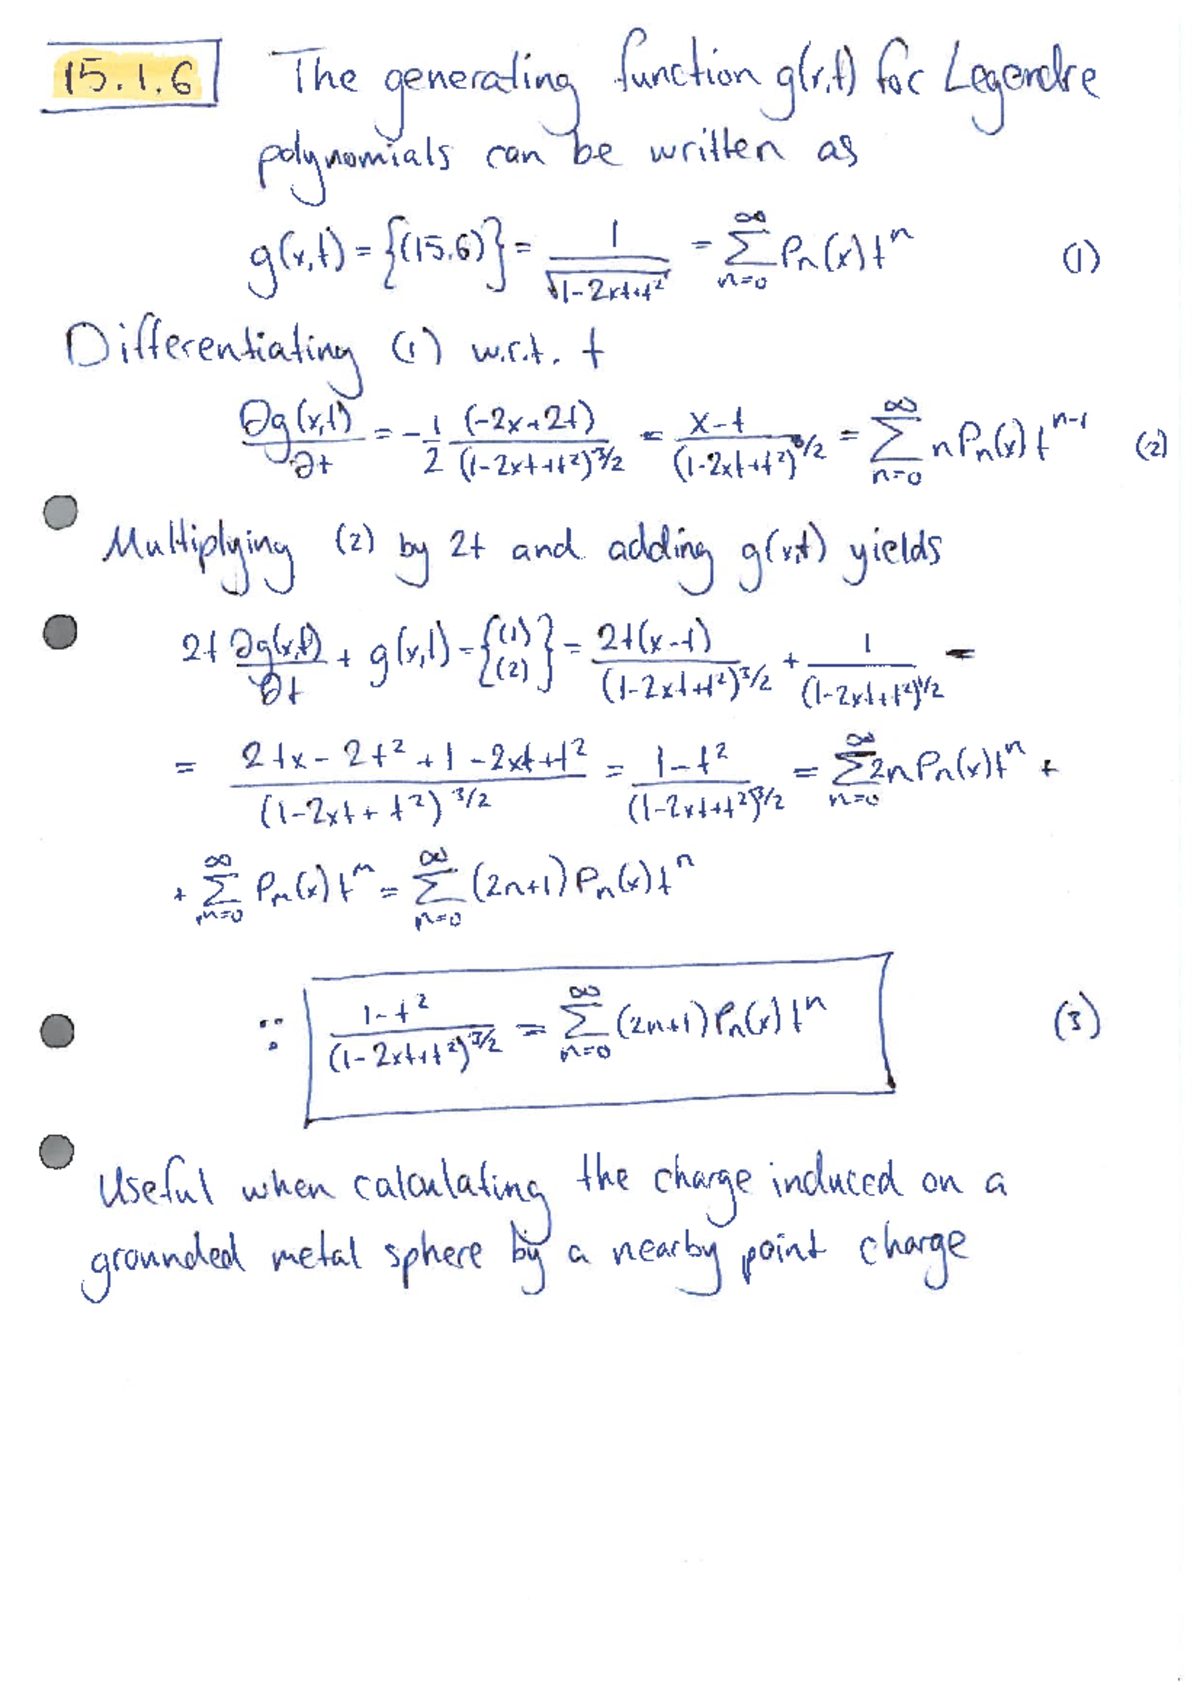 15.1.6 The generating function g(x,t) for Legendre
polynomials can be written as
g(x,t) = {(15.6)} = 1/√(1-2xt+t²) = ∑_{n=0}^{∞} Pn(x) tⁿ (1)
Differentiating (1) w.r.t. t
∂g(x,t)/∂t = -1/2 (-2x+2t)/(1-2xt+t²)^{3/2} = (x-t)/(1-2xt+t²)^{3/2} = ∑_{n=0}^{∞} n Pn(x) t^{n-1} (2)
Multiplying (2) by 2t and adding g(x,t) yields
2t ∂g(x,t)/∂t + g(x,t) = {(1) (2)} = 2t(x-t)/(1-2xt+t²)^{3/2} + 1/(1-2xt+t²)^{1/2} =
= (2tx - 2t² + 1 - 2xt + t²)/(1-2xt+t²)^{3/2} = (1-t²)/(1-2xt+t²)^{3/2} = ∑_{n=0}^{∞} 2n Pn(x) tⁿ +
+ ∑_{m=0}^{∞} Pm(x) t^m = ∑_{n=0}^{∞} (2n+1) Pn(x) tⁿ
∵ (1-t²)/(1-2xt+t²)^{3/2} = ∑_{n=0}^{∞} (2n+1) Pn(x) tⁿ (3)
Useful when calculating the charge induced on a
grounded metal sphere by a nearby point charge